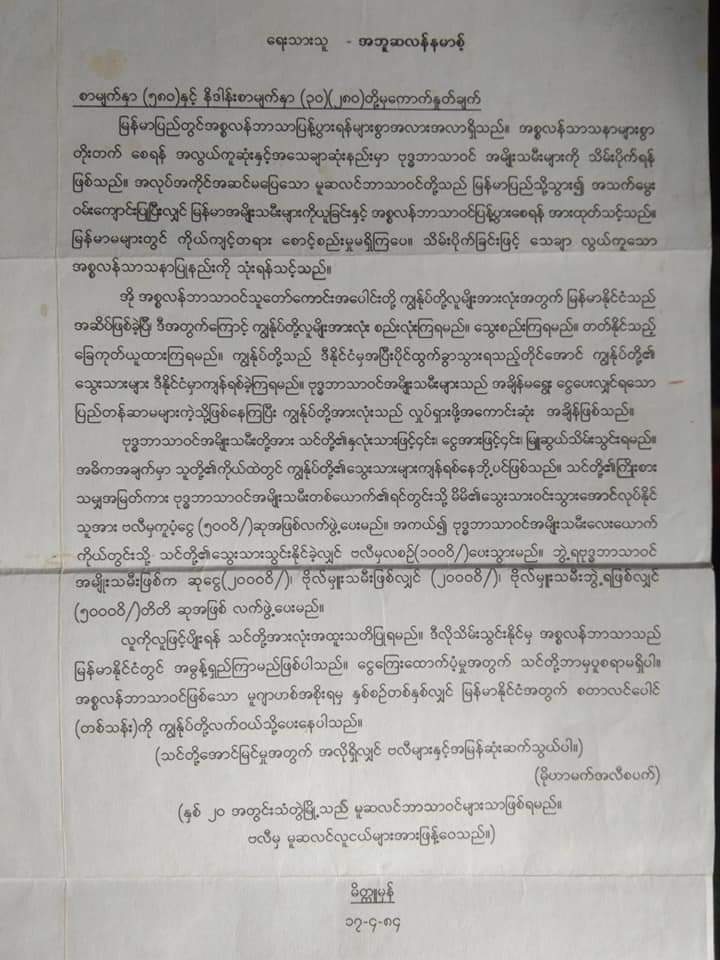 ရေးသားသူ - အဘူဆလန်နမာစ့်
စာမျက်နှာ (၅၈၀)နှင့် နိဒါန်းစာမျက်နှာ (၃၀)(၂၈၀)တို့မှကောက်နှုတ်ချက်
မြန်မာပြည်တွင်အစ္စလန်ဘာသာပြန့်ပွားရန်များစွာအလားအလာရှိသည်။ အစ္စလန်သာသနာများစွာ
တိုးတက် စေရန် အလွယ်ကူဆုံးနှင့်အသေချာဆုံးနည်းမှာ ဗုဒ္ဓဘာသာဝင် အမျိုးသမီးများကို သိမ်းပိုက်ရန်
ဖြစ်သည်။ အလုပ်အကိုင်အဆင်မပြေသော မူဆလင်ဘာသာဝင်တို့သည် မြန်မာပြည်သို့သွား၍ အသက်မွေး
ဝမ်းကျောင်းပြုပြီးလျှင် မြန်မာအမျိုးသမီးများကိုယူခြင်းနှင့် အစ္စလန်ဘာသာဝင်ပြန့်ပွားစေရန် အားထုတ်သင့်သည်။
မြန်မာမများတွင် ကိုယ်ကျင့်တရား စောင့်စည်းမှုမရှိကြပေ။ သိမ်းပိုက်ခြင်းဖြင့် သေချာ လွယ်ကူသော
အစ္စလန်သာသနာပြုနည်းကို သုံးရန်သင့်သည်။
အို အစ္စလန်ဘာသာဝင်သူတော်ကောင်းအပေါင်းတို့ ကျွန်ုပ်တို့လူမျိုးအားလုံးအတွက် မြန်မာနိုင်ငံသည်
အဆိပ်ဖြစ်ခဲ့ပြီ၊ ဒီအတွက်ကြောင့် ကျွန်ုပ်တို့လူမျိုးအားလုံး စည်းလုံးကြရမည်။ သွေးစည်းကြရမည်။ တတ်နိုင်သည့်
ခြေကုတ်ယူထားကြရမည်။ ကျွန်ုပ်တို့သည် ဒီနိုင်ငံမှအပြီးပိုင်ထွက်ခွာသွားရသည့်တိုင်အောင် ကျွန်ုပ်တို့၏
သွေးသားများ ဒီနိုင်ငံမှာကျန်ရစ်ခဲ့ကြရမည်။ ဗုဒ္ဓဘာသာဝင်အမျိုးသမီးများသည် အချိန်မရွေး ငွေပေးလျှင်ရသော
ပြည်တန်ဆာမများကဲ့သို့ဖြစ်နေကြပြီး ကျွန်ုပ်တို့အားလုံးသည် လှုပ်ရှားဖို့အကောင်းဆုံး အချိန်ဖြစ်သည်။
ဗုဒ္ဓဘာသာဝင်အမျိုးသမီးတို့အား သင်တို့၏နှလုံးသားဖြင့်၄င်း၊ ငွေအားဖြင့်၄င်း၊ မြူဆွယ်သိမ်းသွင်းရမည်။
အဓိကအချက်မှာ သူတို့၏ကိုယ်ထဲတွင် ကျွန်ုပ်တို့၏သွေးသားများကျန်ရစ်နေဘို့ပင်ဖြစ်သည်။ သင်တို့၏ကြိုးစား
သမျှအမြတ်ကား ဗုဒ္ဓဘာသာဝင်အမျိုးသမီးတစ်ယောက်၏ရင်တွင်းသို့ မိမိ၏သွေးသားဝင်းသွားအောင်လုပ်နိုင်
သူအား ဗလီမှကူပံ့ငွေ (၅၀၀ဝိ/)ဆုအဖြစ်လက်ဖွဲ့ပေးမည်။ အကယ်၍ ဗုဒ္ဓဘာသာဝင်အမျိုးသမီးလေးယောက်
ကိုယ်တွင်းသို့ သင်တို့၏သွေးသားသွင်းနိုင်ခဲ့လျှင် ဗလီမှလစဉ်(၁၀၀ဝိ/)ပေးသွားမည်။ ဘွဲ့ရဗုဒ္ဓဘာသာဝင်
အမျိုးသမီးဖြစ်က ဆုငွေ(၂၀၀၀ဝိ/)၊ ဗိုလ်မှူးသမီးဖြစ်လျှင် (၂၀၀၀ဝိ/)၊ ဗိုလ်မှူးသမီးဘွဲ့ရဖြစ်လျှင်
(၅၀၀၀ဝိ/)တိတိ ဆုအဖြစ် လက်ဖွဲ့ပေးမည်။
လူကိုလူဖြင့်ပျိုးရန် သင်တို့အားလုံးအထူးသတိပြုရမည်။ ဒီလိုသိမ်းသွင်းနိုင်မှ အစ္စလန်ဘာသာသည်
မြန်မာနိုင်ငံတွင် အဓွန့်ရှည်ကြာမည်ဖြစ်ပါသည်။ ငွေကြေးထောက်ပံ့မှုအတွက် သင်တို့ဘာမှပူစရာမရှိပါ။
အစ္စလန်ဘာသာဝင်ဖြစ်သော မူဂျာဟစ်အစိုးရမှ နှစ်စဉ်တစ်နှစ်လျှင် မြန်မာနိုင်ငံအတွက် စတာလင်ပေါင်
(တစ်သန်း)ကို ကျွန်ုပ်တို့လက်ဝယ်သို့ပေးနေပါသည်။
(သင်တို့အောင်မြင်မှုအတွက် အလိုရှိလျှင် ဗလီများနှင့်အမြန်ဆုံးဆက်သွယ်ပါ။)
(မိုဟာမက်အလီစပက်)
(နှစ် ၂၀ အတွင်းသံတွဲမြို့သည် မူဆလင်ဘာသာဝင်များသာဖြစ်ရမည်။
ဗလီမှ မူဆလင်လူငယ်များအားဖြန့်ဝေသည်။)
မိတ္တူမှန်
၁၇-၄-၈၄